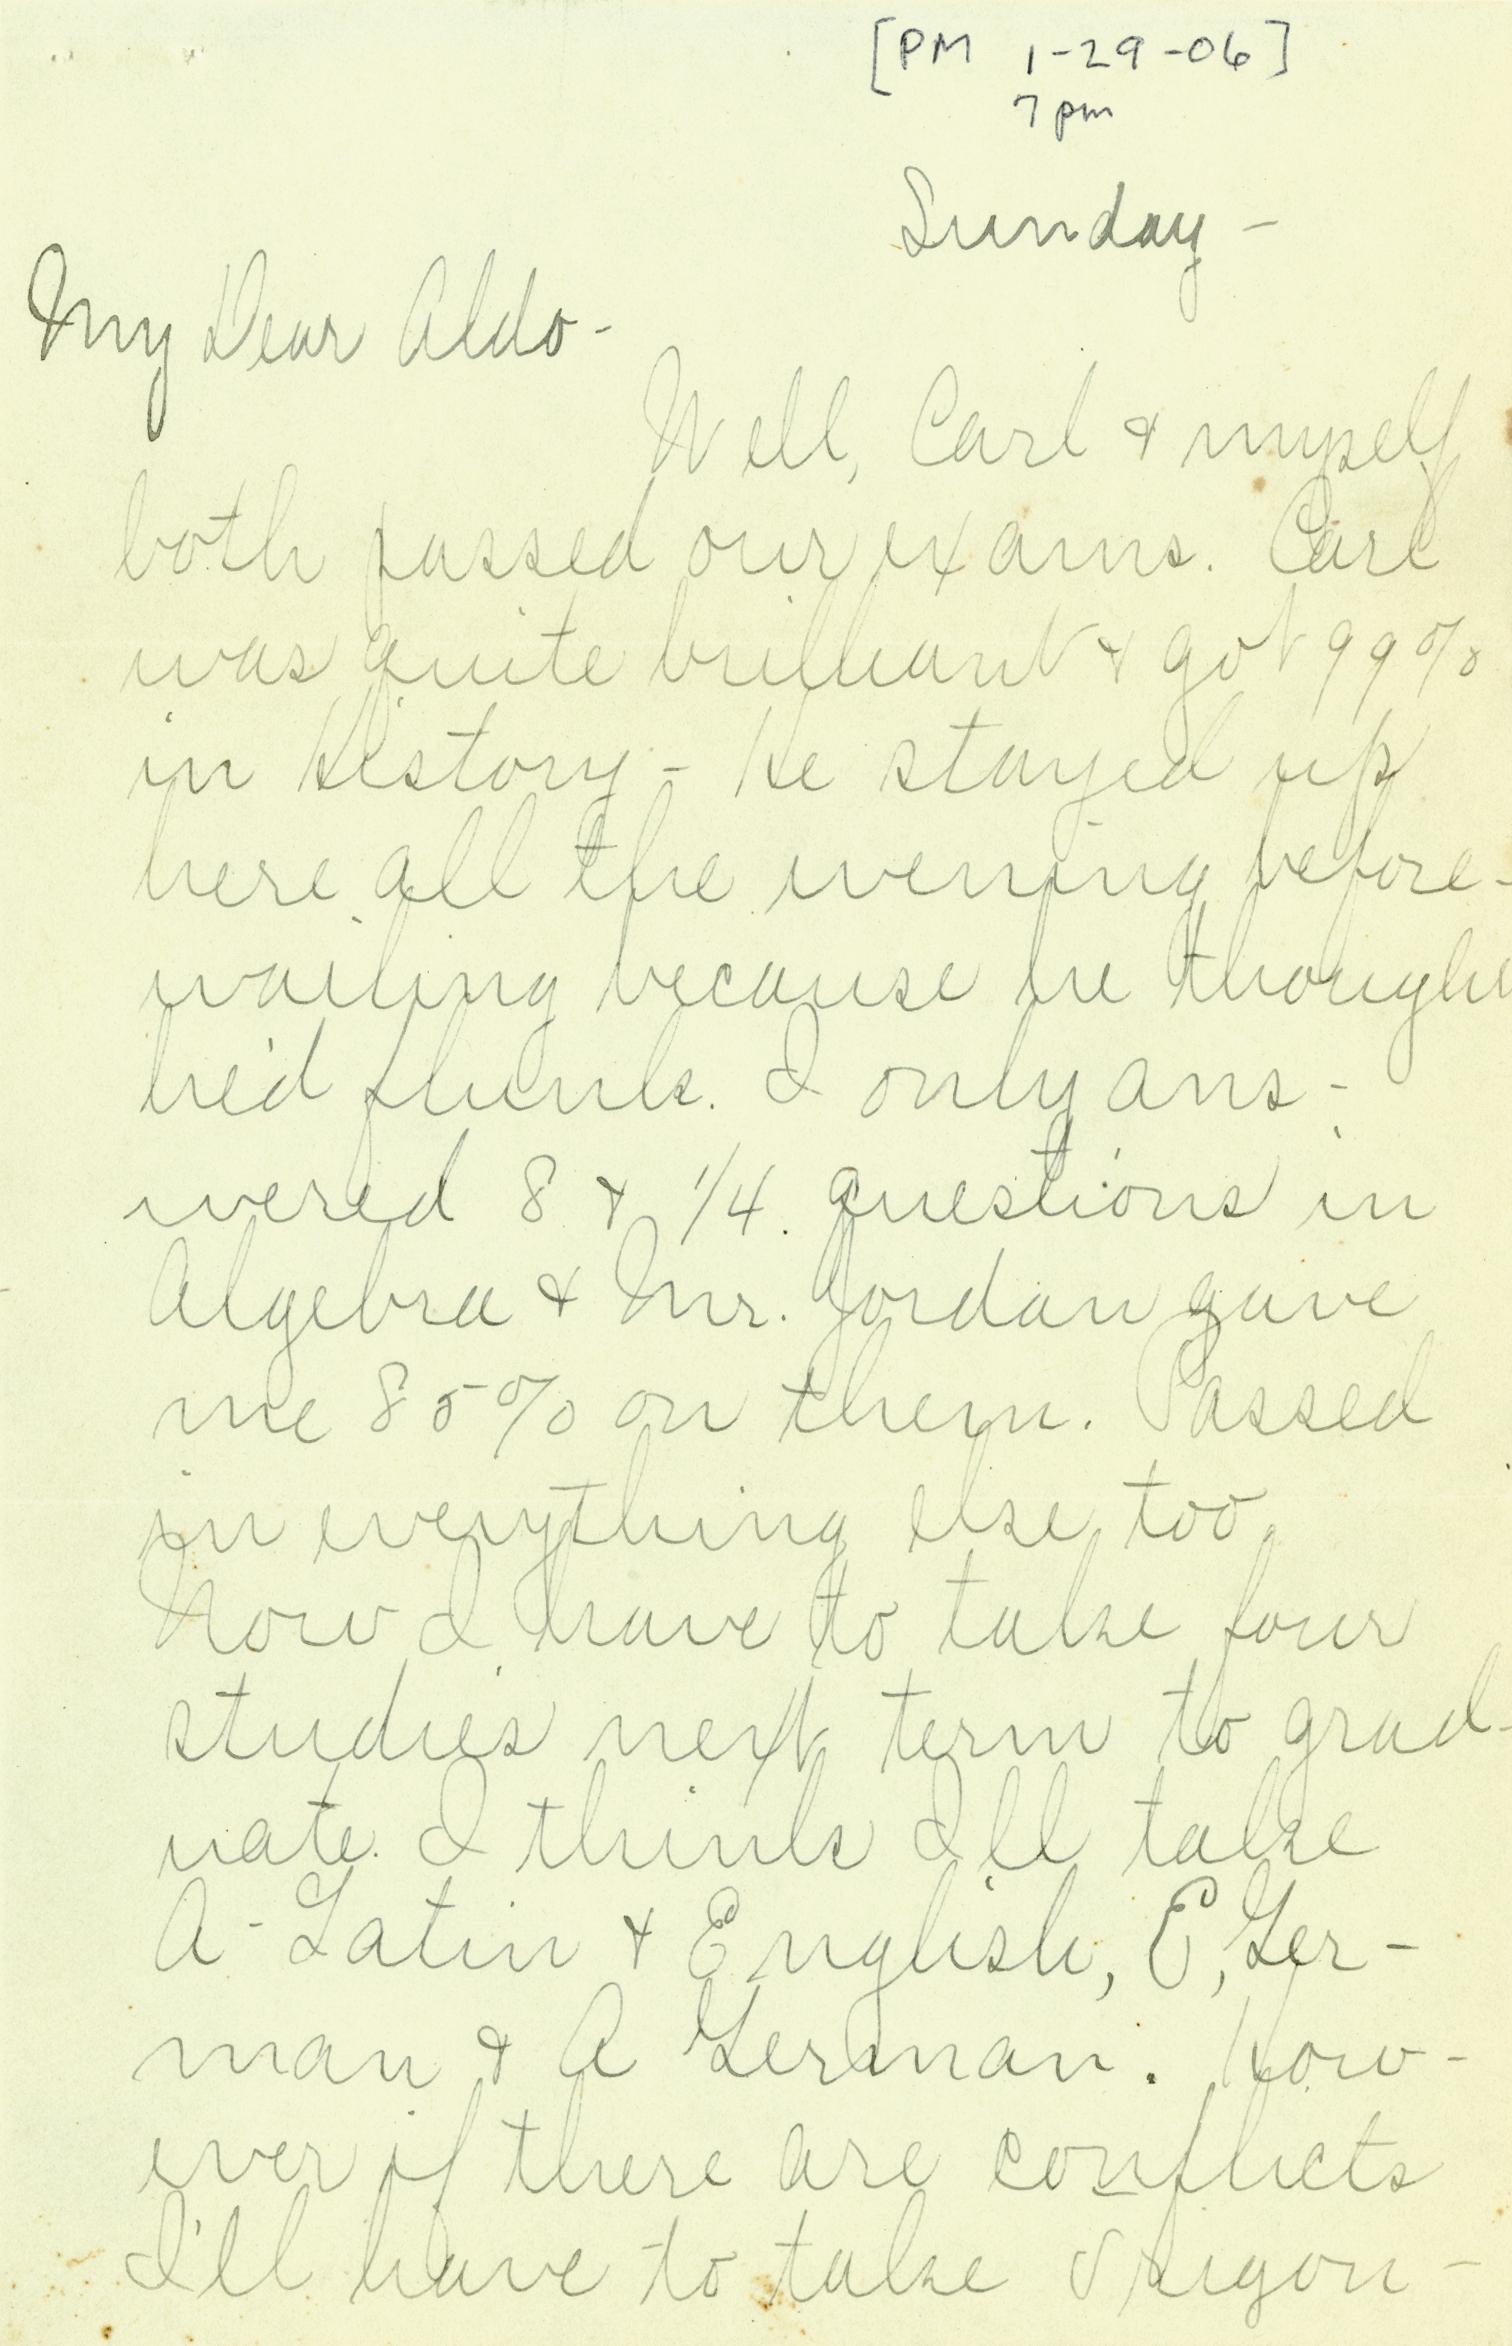 [PM 1-29-06]
7 pm
Sunday -
My Dear Aldo -
Well, Carl & myself
both passed our exams. Carl
was quite brilliant & got 99%
in History - He stayed up
here all the evening before -
wailing because he thought
he'd flunk. I only ans-
wered 8 & 1/4 questions in
Algebra & Mr. Jordan gave
me 85% on them. Passed
in everything else, too.
Now I have to take four
studies next term to grad-
uate. I think I'll take
A - Latin & English, E, Ger-
man & A German. How-
ever if there are conflicts
I'll have to take Trigon-